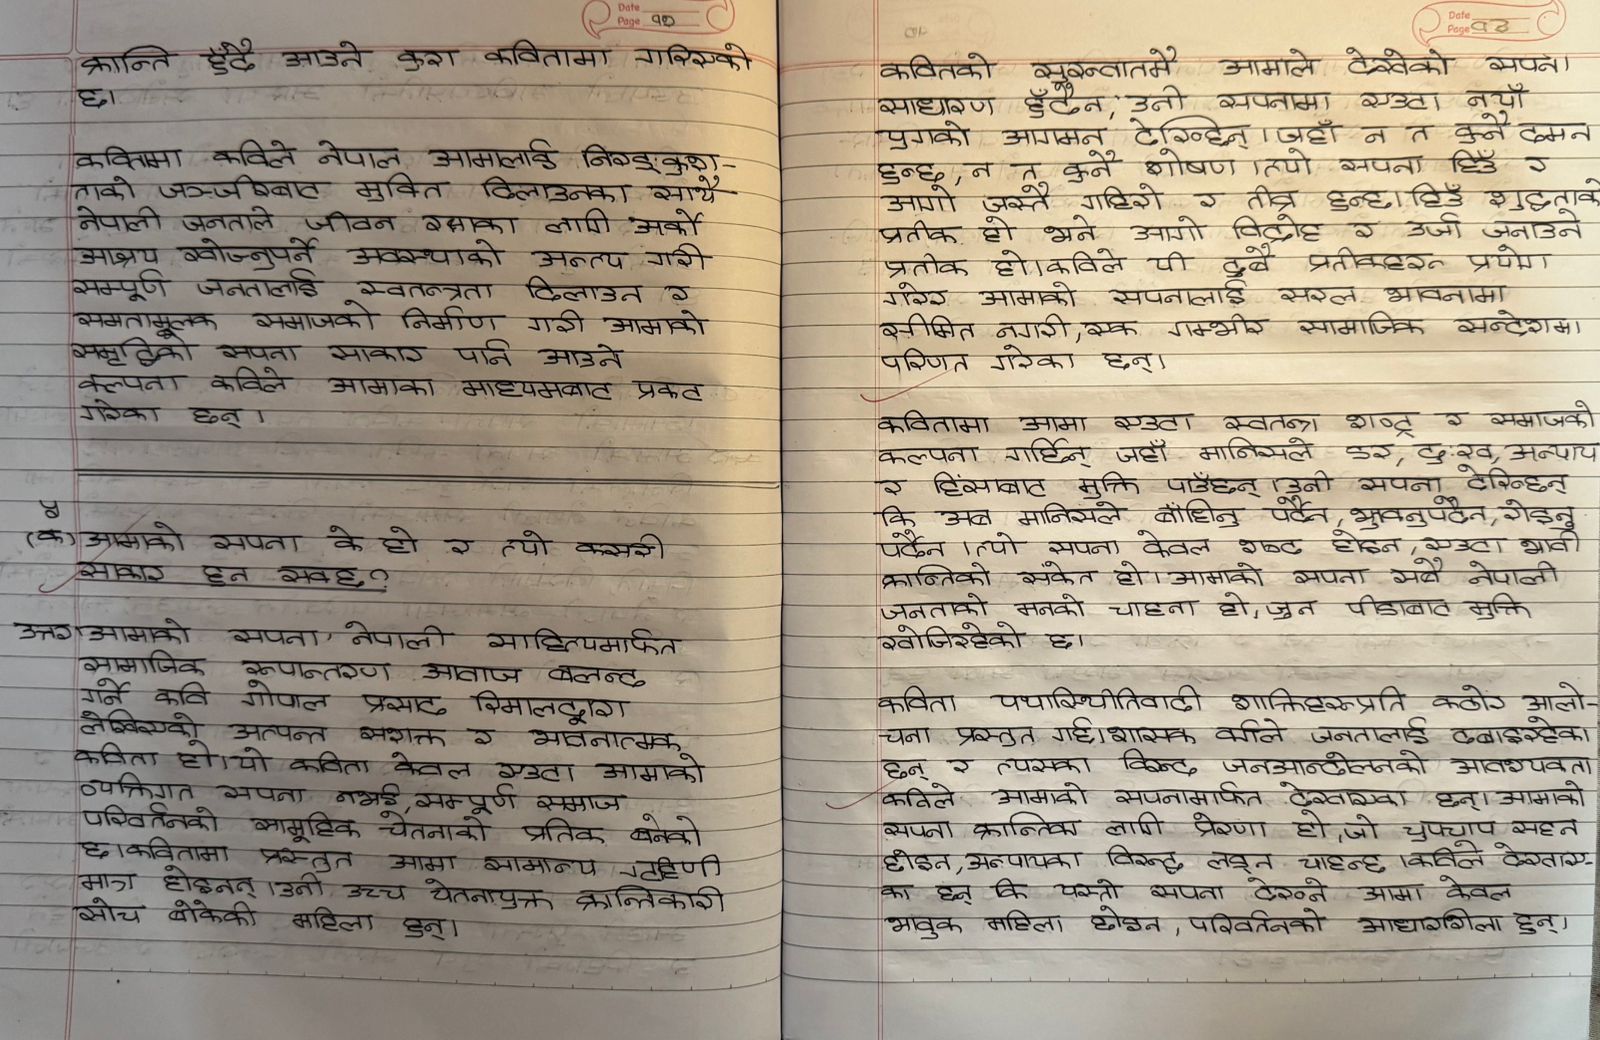 Date
Page १७
क्रान्ति हुँदै आउने कुरा कवितामा गरिएको
छ।
कवितामा कविले नेपाल आमालाई निरङ्कुश-
ताको जञ्जीरबाट मुक्ति दिलाउनका साथै
नेपाली जनताले जीवन रक्षाका लागी अर्को
आश्रय खोज्नुपर्ने अवस्थाको अन्त्य गरी
सम्पूर्ण जनतालाई स्वतन्त्रता दिलाउन र
समतामूलक समाजको निर्माण गरी आमाको
समृद्धिको सपना साकार पार्न आउने
कल्पना कविले आमाका माध्यमबाट प्रकट
गरेका छन्।
४
(क) आमाको सपना के हो र त्यो कसरी
साकार हुन सक्छ?
उत्तर आमाको सपना' नेपाली साहित्यमार्फत
सामाजिक रूपान्तरण आवाज बलन्द
गर्ने कवि गोपाल प्रसाद रिमालद्वारा
लेखिएको अत्यन्त सशक्त र भावनात्मक
कविता हो। यो कविता केवल एउटा आमाको
व्यक्तिगत सपना नभई, सम्पूर्ण समाज
परिवर्तनको सामूहिक चेतनाको प्रतिक बनेको
छ। कवितामा प्रस्तुत आमा सामान्य गृहिणी
मात्र होइनन्। उनी उच्च चेतनायुक्त क्रान्तिकारी
सोच बोकेकी महिला हुन्।
Date
Page १८
कवितको सुरुवातमै आमाले देखेको सपना
साधारण हुँदैन, उनी सपनामा एउटा नयाँ
युगको आगमन देख्छिन्। जहाँ न त कुनै दमन
हुन्छ, न त कुनै शोषण। त्यो सपना हिउँ र
आगो जस्तै गहिरो र तीव्र हुन्छ। हिउँ शुद्धताको
प्रतीक हो भने आगो विद्रोह र उर्जा जनाउने
प्रतीक हो। कविले यी दुबै प्रतीकहरू प्रयोग
गरेर आमाको सपनालाई सरल भावनामा
सीमित नगरी, एक गम्भीर सामाजिक सन्देशमा
परिणत गरेका छन्।
कवितामा आमा एउटा स्वतन्त्र राष्ट्र र समाजको
कल्पना गर्छिन् जहाँ मानिसले डर, दुःख, अन्याय
र हिंसाबाट मुक्ति पाउँछन्। उनी सपना देख्छिन्
कि अब मानिसले बाँधिनु पर्दैन, झुक्नुपर्दैन, रोइनु
पर्दैन। त्यो सपना केवल शब्द होइन, एउटा भावी
क्रान्तिको संकेत हो। आमाको सपना सबै नेपाली
जनताको मनको चाहना हो, जुन पीडाबाट मुक्ति
खोजिरहेको छ।
कविता यथास्थितिवादी शक्तिहरूप्रति कठोर आलो-
चना प्रस्तुत गर्छ। शासक वर्गले जनतालाई दबाइरहेका
छन् र त्यसका विरुद्ध जनआन्दोलनको आवश्यकता
कविले आमाको सपनामार्फत देखाएका छन्। आमाको
सपना क्रान्तिका लागी प्रेरणा हो, जो चुपचाप सहन
होइन, अन्यायका विरुद्ध लड्न चाहन्छ। कविले देखाए-
का छन् कि यस्तो सपना देख्ने आमा केवल
भावुक महिला होइन, परिवर्तनको आधारशिला हुन्।